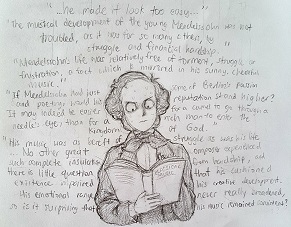 "...he made it look too easy..."
"The musical development of the young Mendelssohn was not
troubled, as it was for so many others, by
struggle and financial hardship."
"Mendelssohn's life was relatively free of torment, struggle or
frustration, a fact which is mirrored in his sunny, cheerful
music."
"If Mendelssohn had just some of Berlioz's passion
and poetry, would his reputation stand higher?
It may indeed be easier for a camel to go through a
needle's eye, than for a rich man to enter the
Kingdom of God."
"His music was as bereft of struggle as was his life
No other great composer experienced
such complete insulation from hardship, and
there is little question that this cushioned
existence his creative development.
His emotional range never really broadened,
so is it surprising that his music remained consistent?